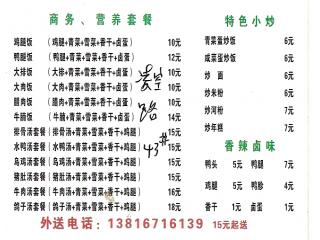 商务、营养套餐
鸡腿饭 (鸡腿+青菜+雪菜+香干+卤蛋) 10元
鸭腿饭 (鸭腿+青菜+雪菜+香干+卤蛋) 12元
大排饭 (大排+青菜+雪菜+香干+卤蛋) 10元
大肉饭 (大肉+青菜+雪菜+香干+卤蛋) 10元
腊肉饭 (腊肉+青菜+雪菜+香干+卤蛋) 10元
牛腩饭 (牛腩+青菜+雪菜+香干+卤蛋) 15元
排骨汤套餐 (排骨汤+青菜+雪菜+香干+鸡腿) 15元
水鸭汤套餐 (水鸭汤+青菜+雪菜+香干+鸡腿) 15元
乌鸡汤套餐 (乌鸡汤+青菜+雪菜+香干+鸡腿) 15元
猪肚汤套餐 (猪肚汤+青菜+雪菜+香干+鸡腿) 15元
牛肉汤套餐 (牛肉汤+青菜+雪菜+香干+鸡腿) 16元
鸽子汤套餐 (鸽子汤+青菜+雪菜+香干+鸡腿) 18元
凌空
路
43#
特色小炒
青菜蛋炒饭 6元
咸菜蛋炒饭 6元
炒 面 6元
炒米粉 6元
炒河粉 7元
炒年糕 7元
香辣卤味
鸭头 5元 鸭腿 7元
鸡腿 5元 鸭胗 4元
香干 1元 卤蛋 1元
外送电话：13816716139 15元起送